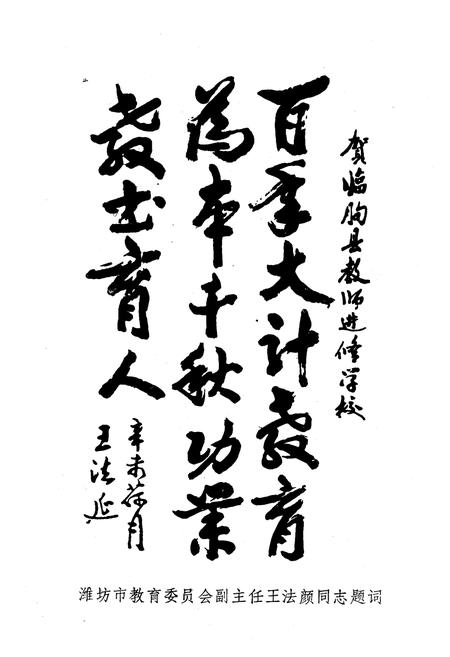 贺临朐县教师进修学校
百年大计教育
为本千秋功业
教书育人
辛未荷月
王法延
潍坊市教育委员会副主任王法颜同志题词